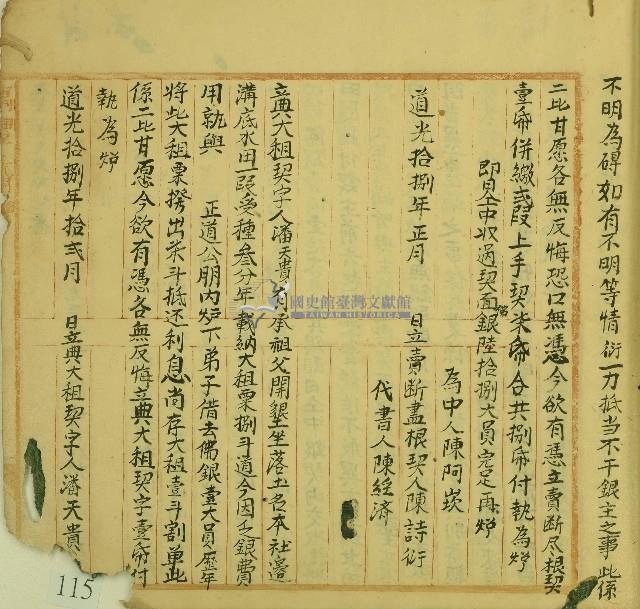 不明為碍如有不明等情衍一力抵当不干銀主之事此係
二比甘愿各無反悔恐口無憑今欲有憑立賣断尽根契
壹帋併繳弍段上手契柒帋合共捌帋付執為炤
即日仝中収過契面銀陸拾捌大員完足再炤
為中人陳阿崁
道光拾捌年正月 日立賣断盡根契人陳詩衍
代書人陳經済
立典大租契字人潘天貴有承祖父開墾坐落土名本社邊
溝底水田一段受種叁分年載納大租粟捌斗道今因乏銀費
用就與 正道公朋內炉下弟子借去佛銀壹大員歷年
將此大租粟撥出柒斗抵还利息尚存大租壹斗割单此
係二比甘愿今欲有憑各無反悔立典大租契字壹帋付
執為炤
道光拾捌年拾弍月 日立典大租契字人潘天貴
國史館臺灣文獻館
TAIWAN HISTORICA
115